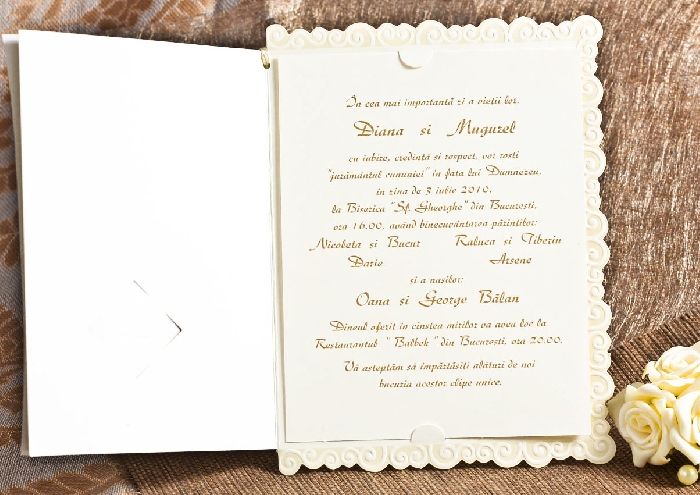 În cea mai importantă zi a vieții lor,
Diana si Mugurel
cu iubire, credință si respect, vor rosti
"jurământul cununiei" în fața lui Dumnezeu,
în ziua de 3 iulie 2010,
la Biserica "Sf. Gheorghe" din București,
ora 16.00, având binecuvântarea părinților:
Nicoleta și Bucur Raluca si Tiberiu
Darie Arsene
si a nașilor:
Oana și George Bălan
Dineul oferit în cinstea mirilor va avea loc la
Restaurantul " Balbek " din București, ora 20.00.
Vă așteptăm să împărtășiți alături de noi
bucuria acestor clipe unice.